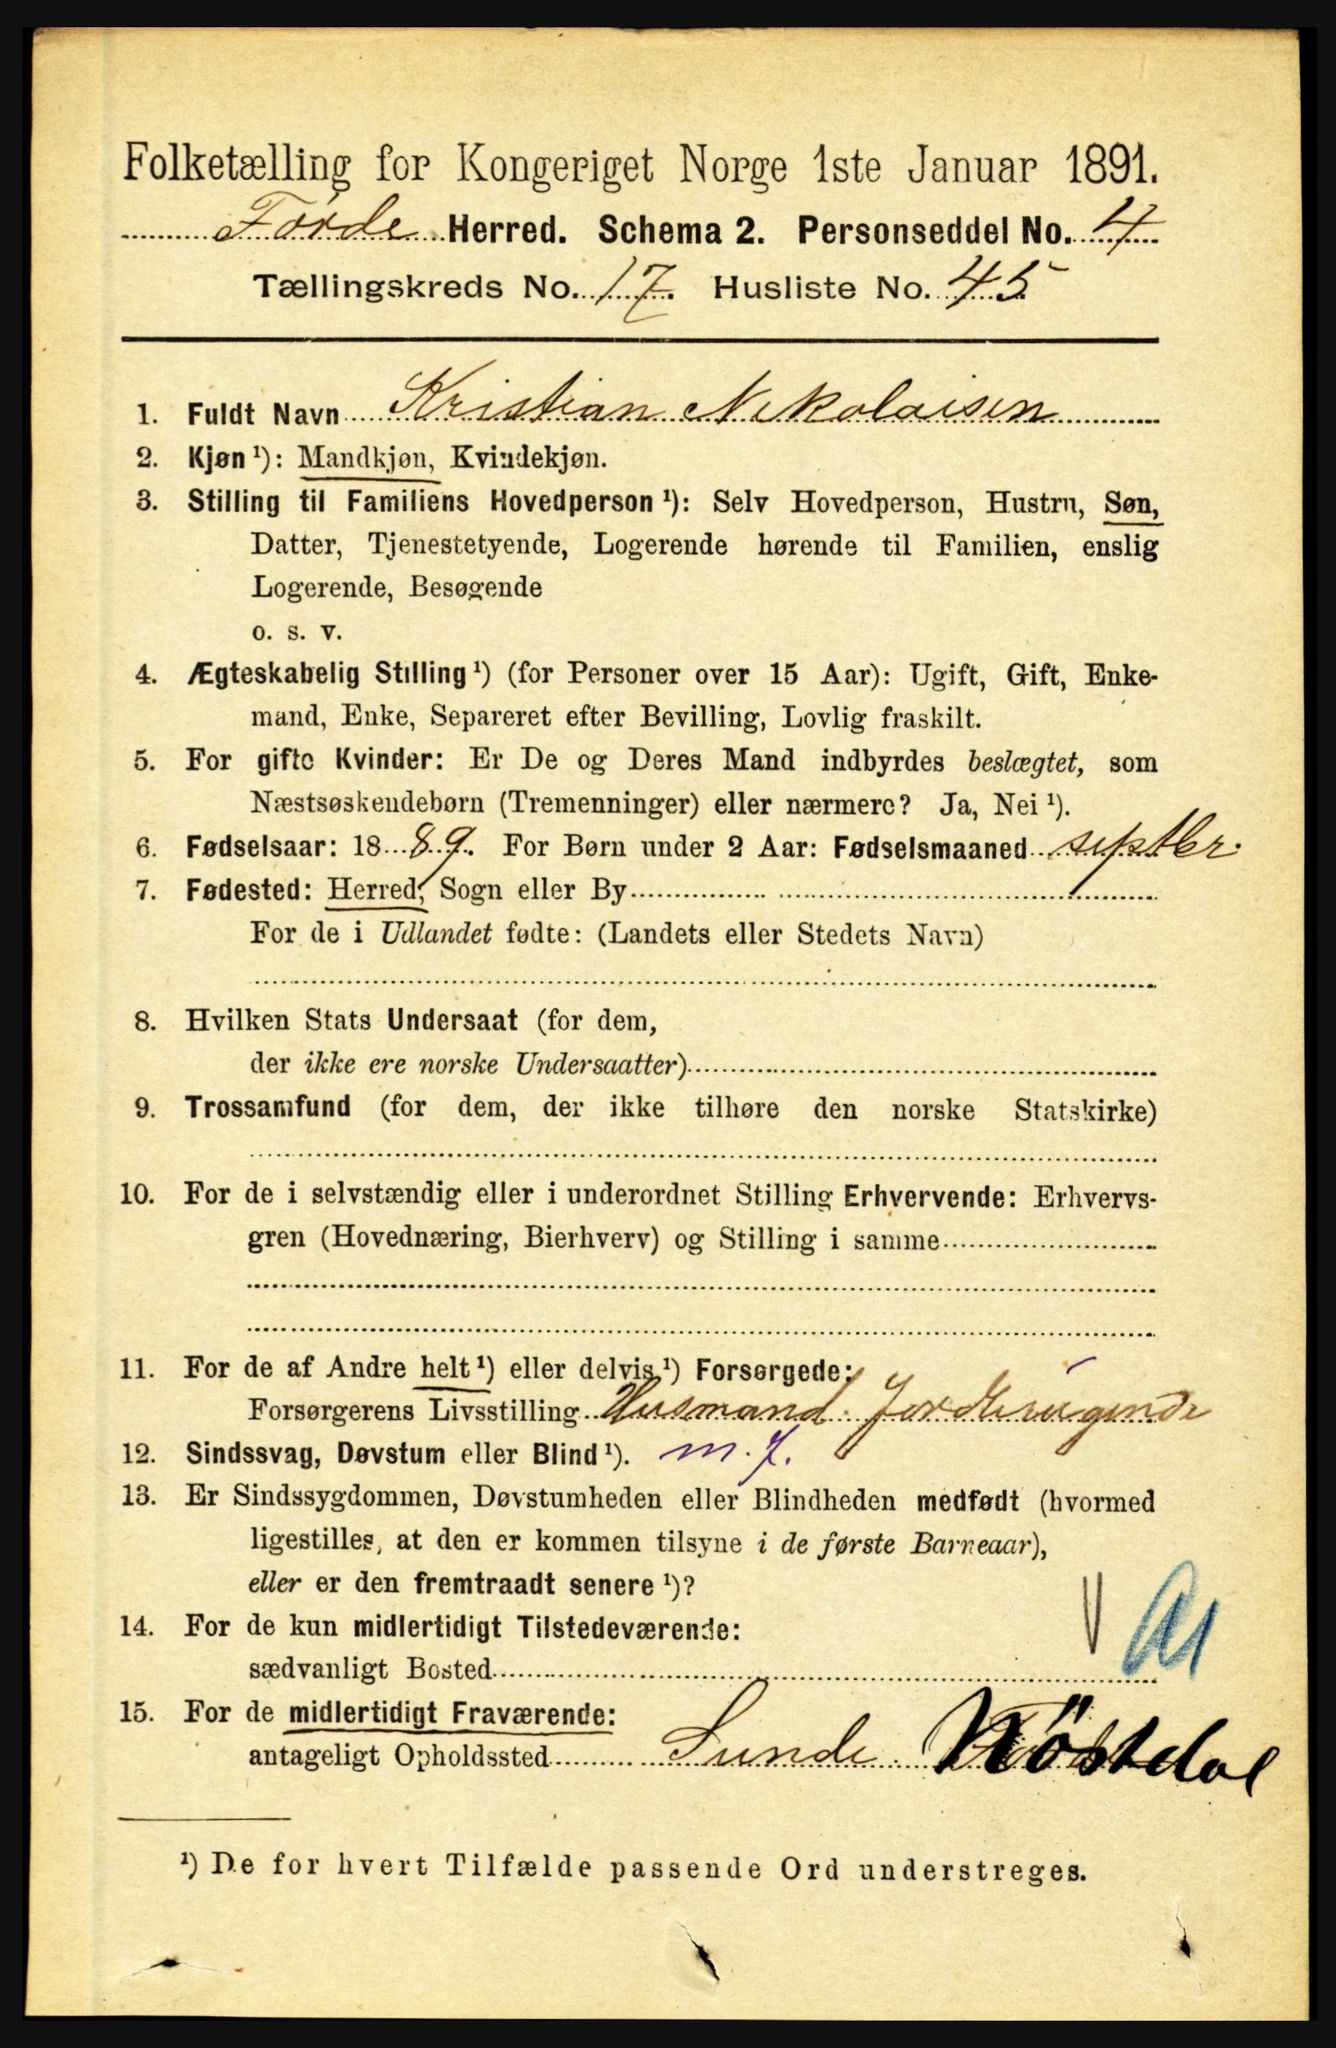 Folketælling for Kongeriget Norge 1ste Januar 1891.
Førde Herred. Schema 2. Personseddel No. 4
Tællingskreds No. 17. Husliste No. 45
1. Fuldt Navn Kristian Nikolaisen
2. Kjøn ¹): Mandkjøn, Kvindekjøn.
3. Stilling til Familiens Hovedperson ¹): Selv Hovedperson, Hustru, Søn,
Datter, Tjenestetyende, Logerende hørende til Familien, enslig
Logerende, Besøgende
o. s. v.
4. Ægteskabelig Stilling ¹) (for Personer over 15 Aar): Ugift, Gift, Enke-
mand, Enke, Separeret efter Bevilling, Lovlig fraskilt.
5. For gifte Kvinder: Er De og Deres Mand indbyrdes beslægtet, som
Næstsøskendebørn (Tremenninger) eller nærmere? Ja, Nei ¹).
6. Fødselsaar: 1889. For Børn under 2 Aar: Fødselsmaaned septbr.
7. Fødested: Herred, Sogn eller By
For de i Udlandet fødte: (Landets eller Stedets Navn)
8. Hvilken Stats Undersaat (for dem,
der ikke ere norske Undersaatter)
9. Trossamfund (for dem, der ikke tilhøre den norske Statskirke)
10. For de i selvstændig eller i underordnet Stilling Erhvervende: Erhvervs-
gren (Hovednæring, Bierhverv) og Stilling i samme
11. For de af Andre helt ¹) eller delvis ¹) Forsørgede:
Forsørgerens Livsstilling Husmand
12. Sindssvag, Døvstum eller Blind ¹). m. J.
13. Er Sindssygdommen, Døvstumheden eller Blindheden medfødt (hvormed
ligestilles, at den er kommen tilsyne i de første Barneaar),
eller er den fremtraadt senere ¹)?
14. For de kun midlertidigt Tilstedeværende:
sædvanligt Bosted
15. For de midlertidigt Fraværende:
antageligt Opholdssted Sunde Nöstdal
¹) De for hvert Tilfælde passende Ord understreges.